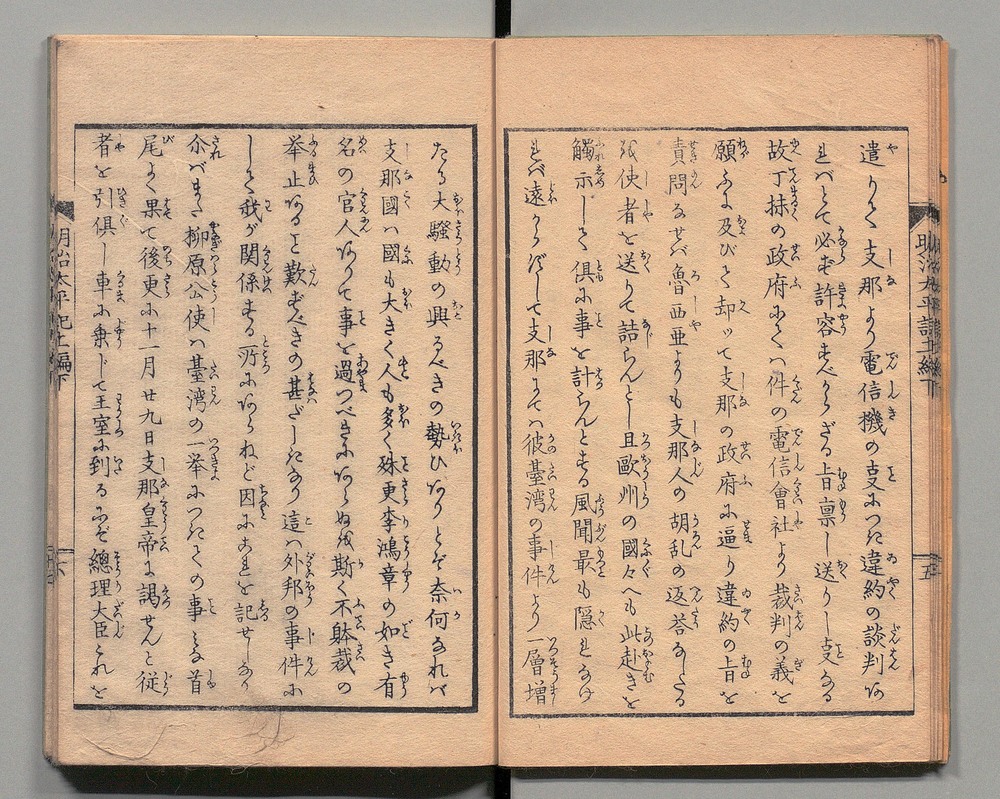 遣りて支那より電信機の支につき違約の談判あ
ればとて必ず許容すべからざる旨稟し送りし支なる
故丁抹の政府にては件の電信會社より裁判の義を
願ふに及びて却ッて支那の政府に逼り違約の旨を
責問なせば魯西亜よりも支那人の胡乱の返答なしたる
我使者を送りて詰らんとし且歐州の國々へも此赴きを
觸示して俱に事を計らんとする風聞最も隠れなけ
れば遠からずして支那にては彼臺湾の事件より一層増
たる大騒動の興るべきの勢ひなりとぞ奈何なれば
支那國は國も大きく人も多く殊更李鴻章の如き有
名の官人ありて事を過つべきにあらぬを斯く不躰裁の
挙止あること歎ずべきの甚だしきなり這は外邦の事件に
して我が関係する所にあらねど因にこれを記せしなり
尒ばまた柳原公使は臺湾の一挙につきての事とる首
尾よく果て後更に十一月廿九日支那皇帝に謁せんと従
者を引俱し車に乗じて王室に到るにぞ總理大臣これを
明治太平記十一編下